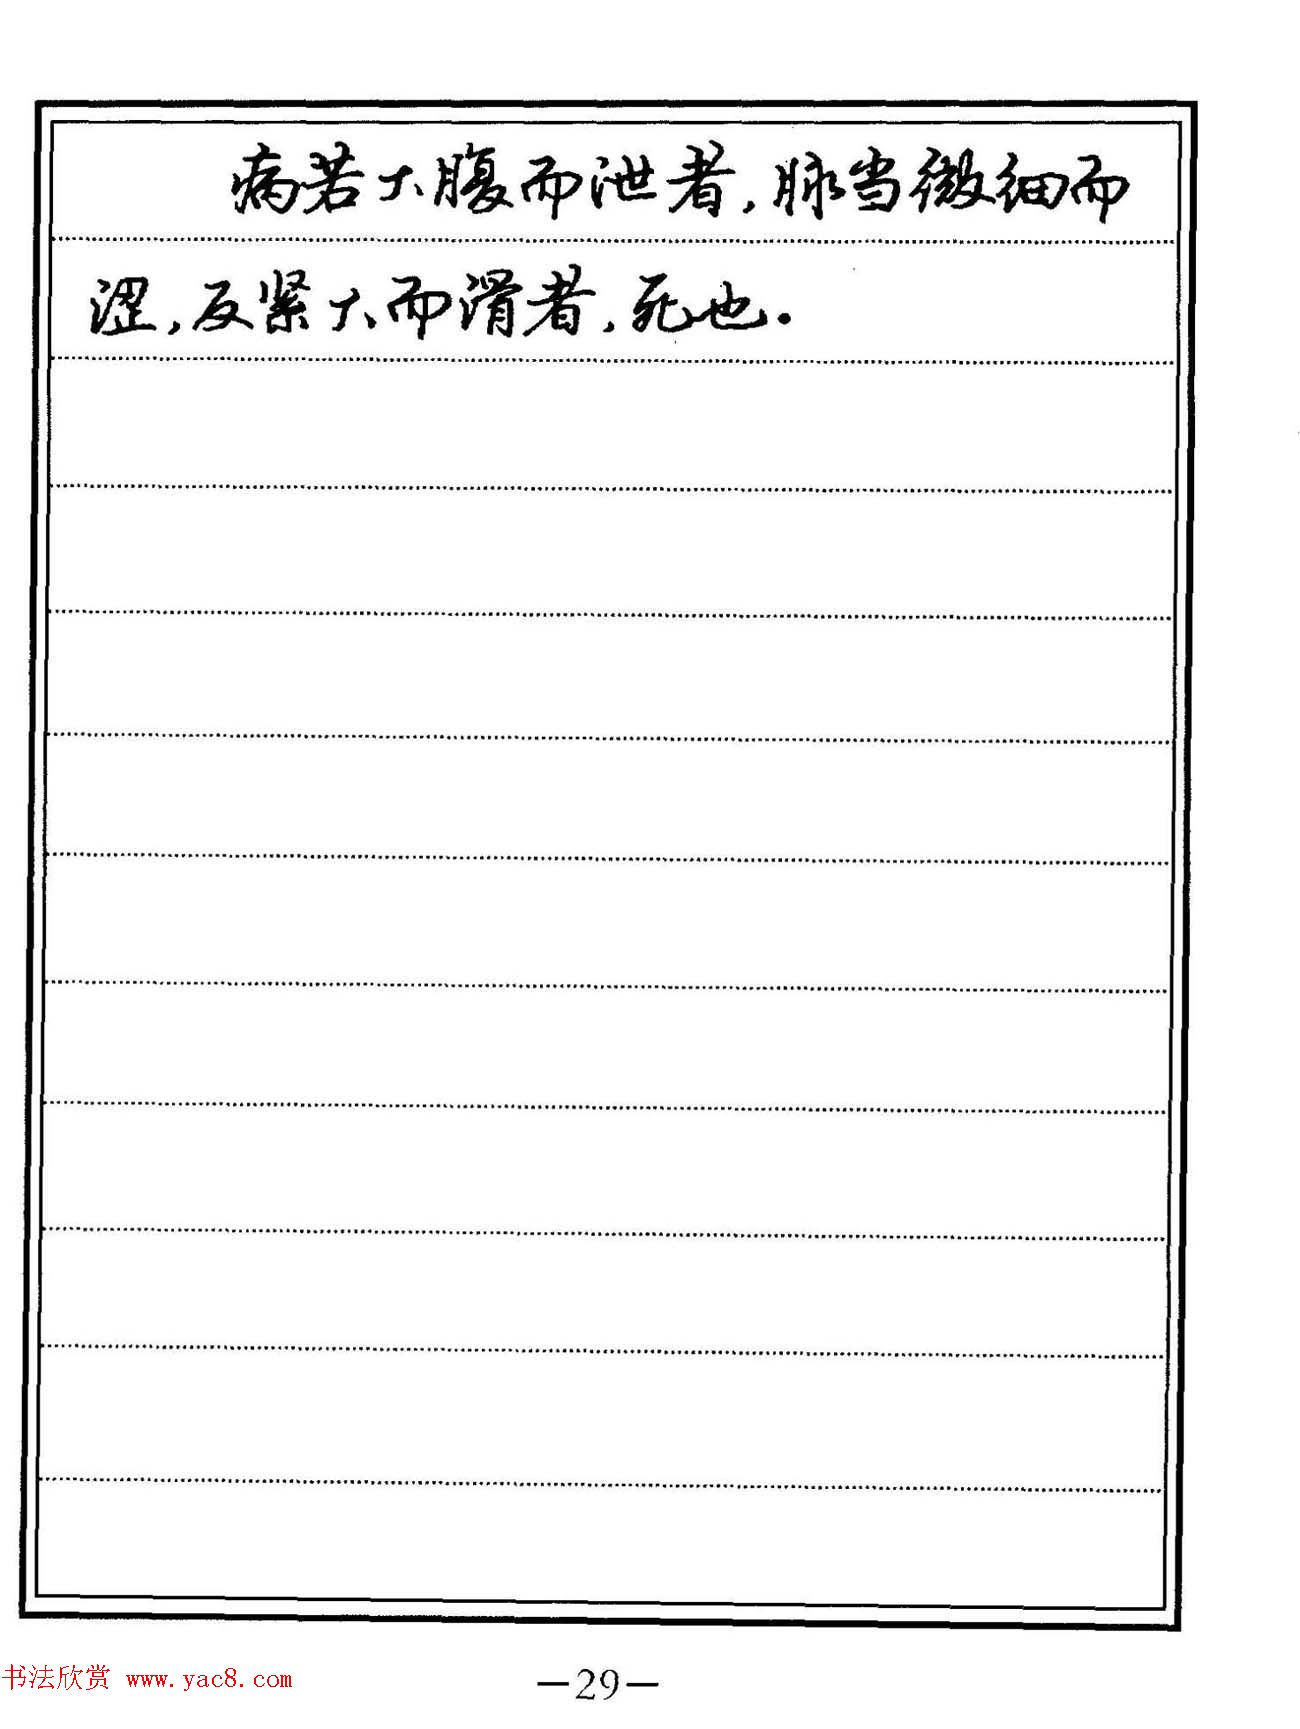 病若大腹而泄者,脉当微细而
涩,反紧大而滑者,死也.
书法欣赏 www.yac8.com
—29—